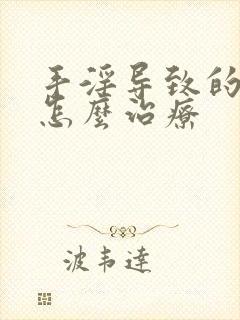 手淫导致的
怎麼治療
波韦達